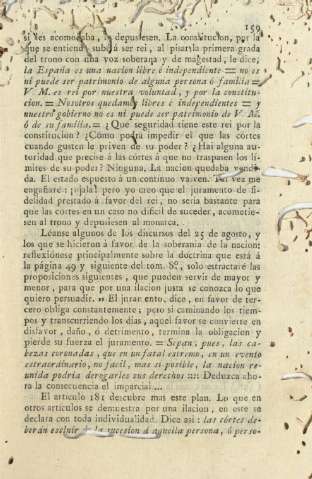 159
si les acomodaba, le depusiesen. La constitucion, por la
que se entiende subirá ser rei, al pisar la primera grada
del trono con una voz soberana y de magestad, le dice,
la España es una nacion libre é independiente = no es
ni puede ser patrimonio de alguna persona ó familia =
V M. es rei por nuestra voluntad, y por la constitu-
cion. = Nosotros quedamos libres é independientes = y
nuestro gobierno no es ni puede ser patrimonio de V M.
ó de su familia. = ¿Que seguridad tiene este rei por la
constitucion? ¿Cómo podrá impedir el que las córtes
cuando gusten le priven de su poder? ¿Hai alguna au-
toridad que precise á las córtes á que no traspasen los lí-
mites de su poder? Ninguna. La nacion quedaba vendi-
da. El estado espuesto á un continuo vaiven. Tal vez me
engañaré: ¡ojala! pero yo creo que el juramento de fi-
delidad prestado á favor del rei, no seria bastante para
que las córtes en un caso no dificil de suceder, acometie-
sen al trono y depusiesen al monarca.
Léanse algunos de los discursos del 25 de agosto, y
los que se hicieron á favor de la soberania de la nacion:
reflexiónese principalmente sobre la doctrina que está á
la página 49 y siguiente del tom. 8º, solo estractaré las
proposiciones siguientes, que pueden servir de mayor y
menor, para que por una ilacion justa se conozca lo que
quiero persuadir. » El juramento, dice, en favor de ter-
cero obliga constantemente; pero si caminando los tiem-
pos y transcurriendo los dias, aquel favor se convierte en
disfavor, daño, ó detrimento, termina la obligacion y
pierde su fuerza el juramento. = Sepan, pues, las ca-
bezas coronadas, que en un fatal estremo, en un evento
estraordinario, no facil, mas si posible, la nacion re-
unida podria derogarles sus derechos ::: Deduzca aho-
ra la consecuencia el imparcial....
El articulo 181 descubre mas este plan. Lo que en
otros artículos se demuestra por una ilacion, en este se
declara con toda individualidad. Dice asi: las córtes de-
berán escluir de la sucesion á aquella persona, ó perso-